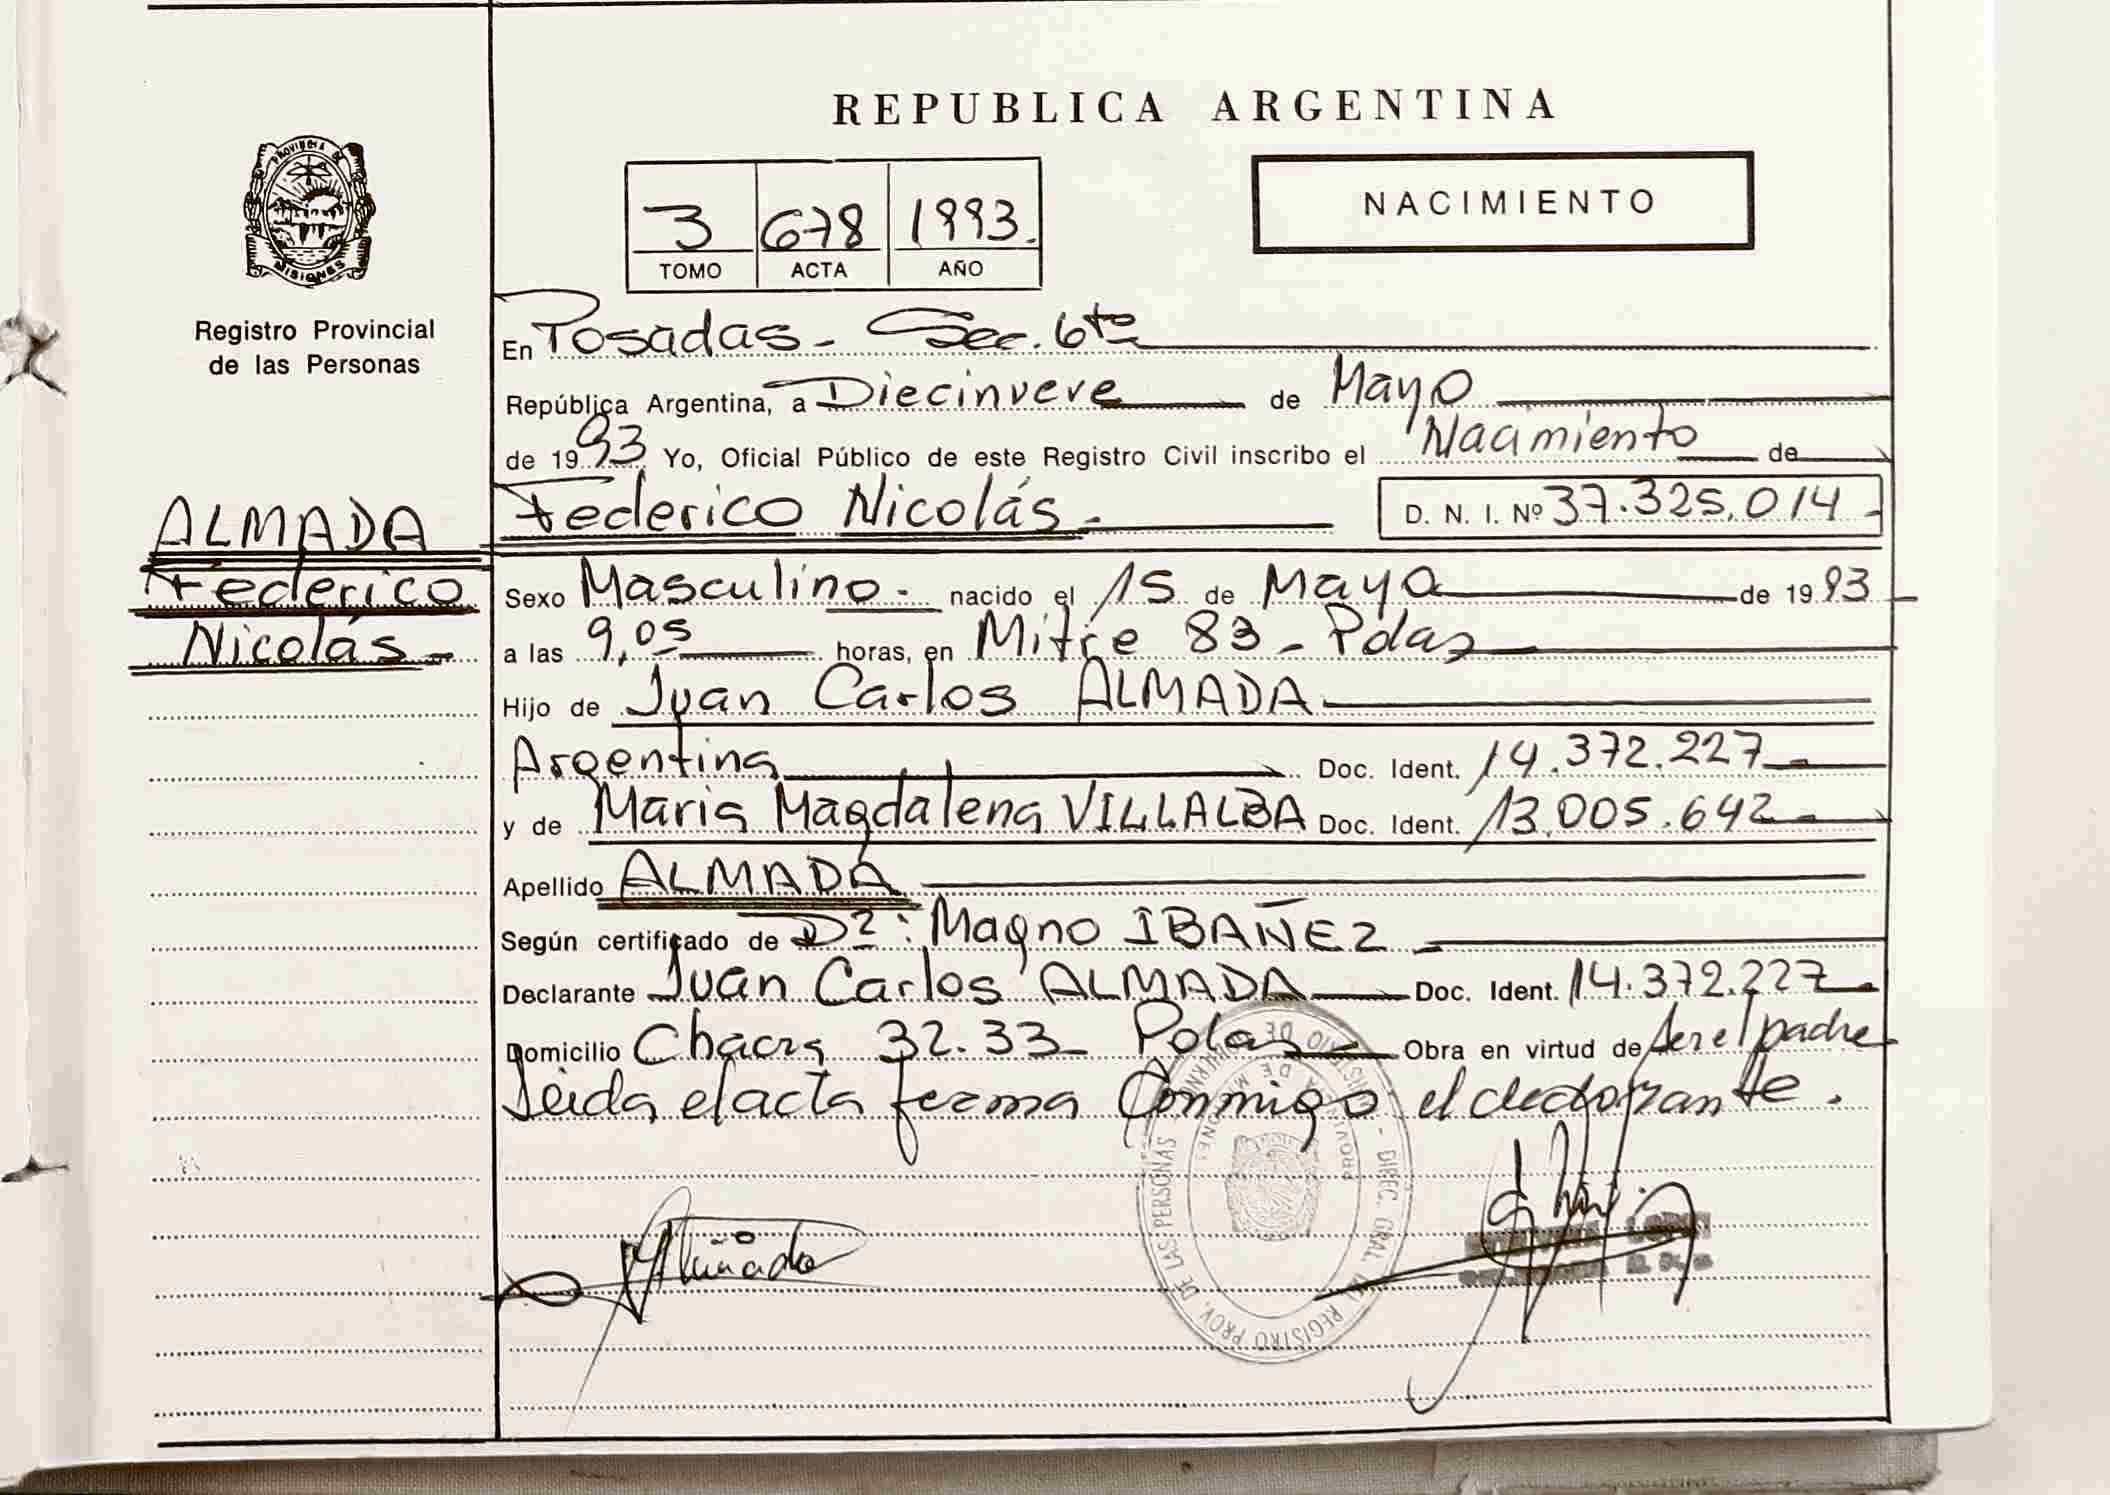 REPUBLICA ARGENTINA
PROVINCIA DE
MISIONES
Registro Provincial
de las Personas
3 678 1993.
TOMO ACTA AÑO
NACIMIENTO
En Posadas - Sec. 6ta
República Argentina, a Diecinueve de Mayo
de 1993 Yo, Oficial Público de este Registro Civil inscribo el Nacimiento de
Federico Nicolás - D. N. I. Nº 37.325.014 -
ALMADA
Federico
Nicolás -
Sexo Masculino - nacido el 15 de Mayo de 1993
a las 9,05 horas, en Mitre 83 - Pdas
Hijo de Juan Carlos ALMADA
Argentina Doc. Ident. 14.372.227
y de Maria Magdalena VILLALBA Doc. Ident. 13.005.642
Apellido ALMADA
Según certificado de Dr: Magno IBAÑEZ
Declarante Juan Carlos ALMADA Doc. Ident. 14.372.227
Domicilio Chacra 32-33 Pdas Obra en virtud de ser el padre
Leida el acta firma Conmigo el declarante.
REGISTRO PROV. DE LAS PERSONAS - DIREC. GRAL.
PROVINCIA DE MISIONES